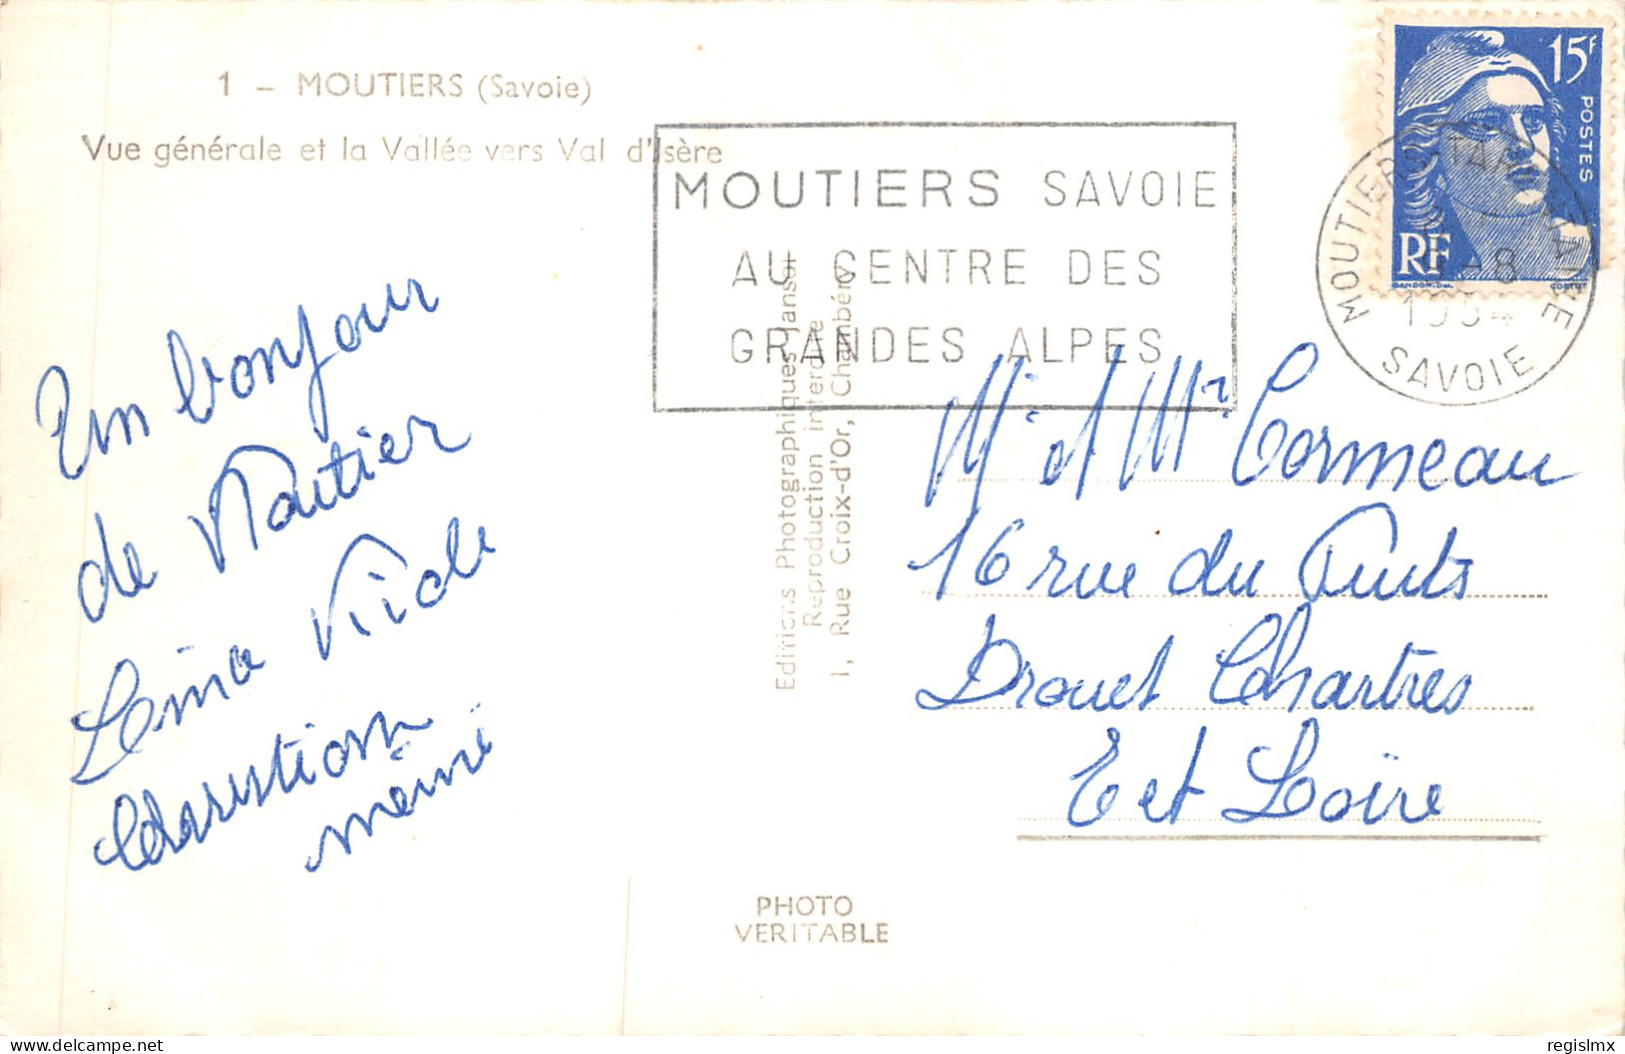 1 - MOUTIERS (Savoie)
Vue générale et la Vallée vers Val d'Isère
MOUTIERS SAVOIE
AU CENTRE DES
GRANDES ALPES
15F
POSTES
RF
GANDON-Del.
MOUTIERS-TARENTAISE
-8
1954
SAVOIE
Un bonjour
de Moutier
mémé
Editions Photographiques Jansol
Reproduction interdite
1, Rue Croix-d'Or, Chambéry
Mr et Mr Cormeau
16 rue du Puits
Drouet Chartres
E et Loïre
PHOTO
VERITABLE
regislmx
delcampe.net